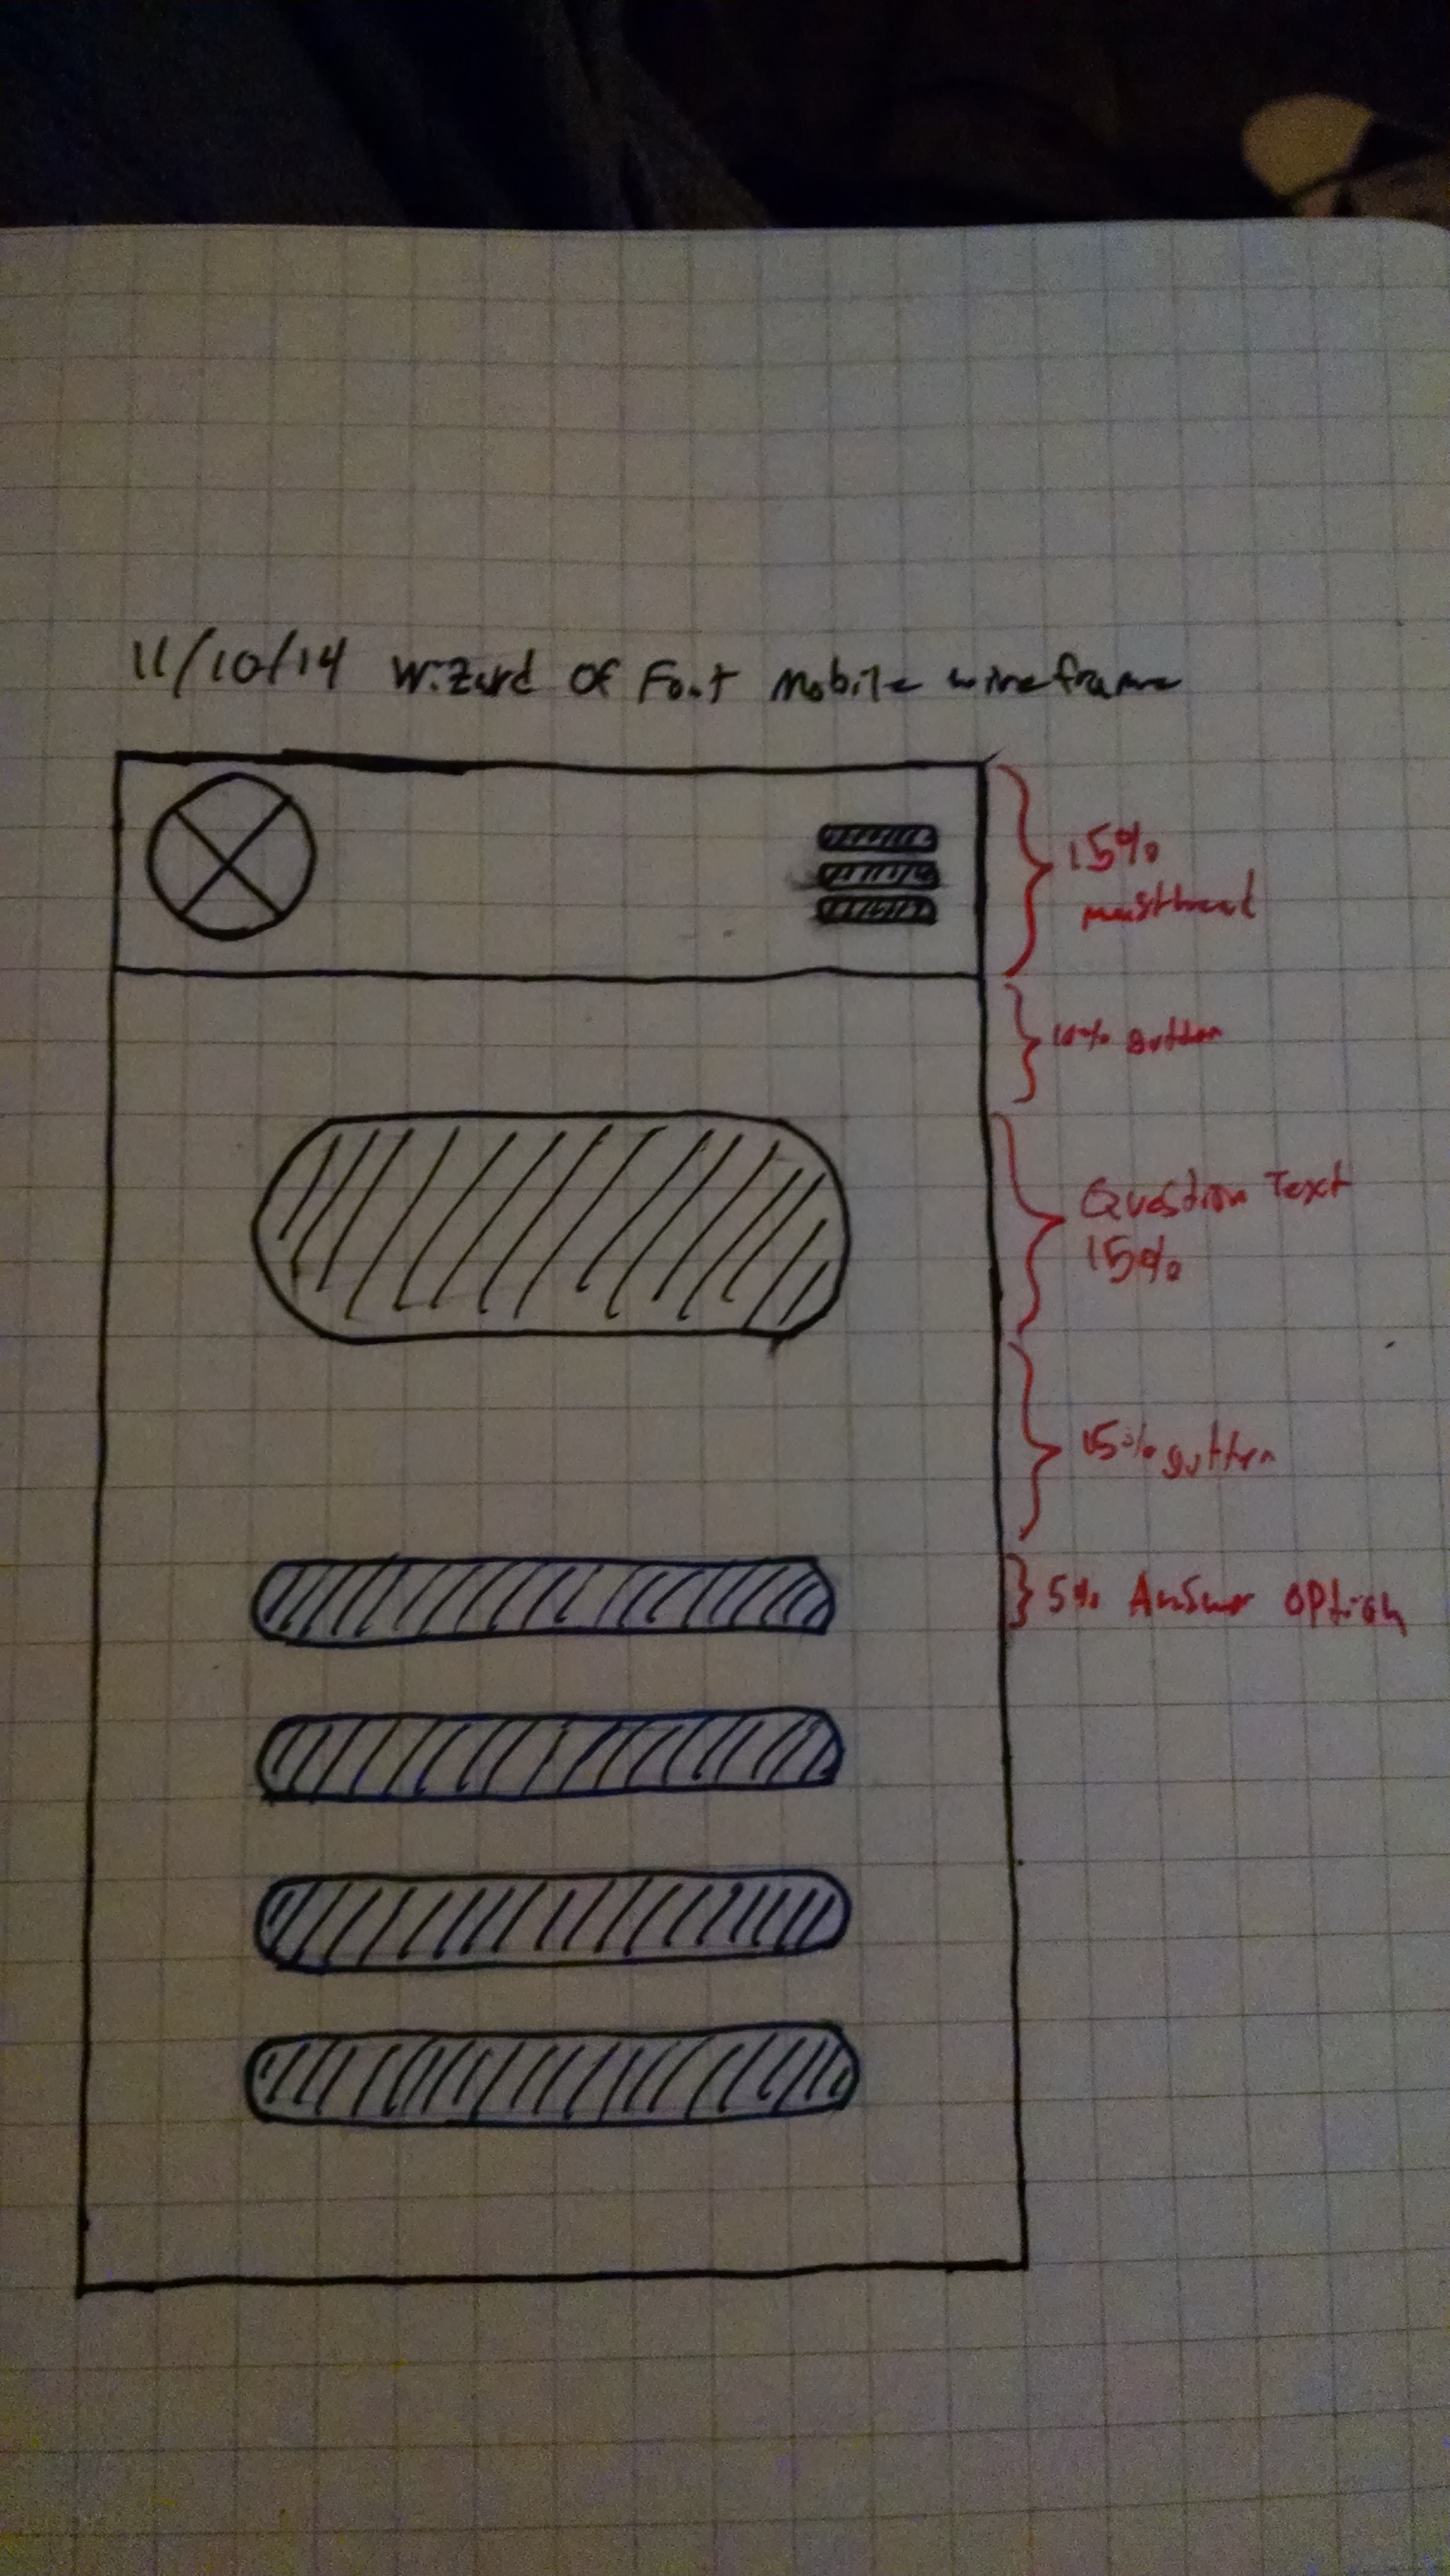 11/10/14 Wizard Of Font Mobile wireframe
15%
masthead
10% Gutter
Question Text
15%
15% gutter
5% Answer option